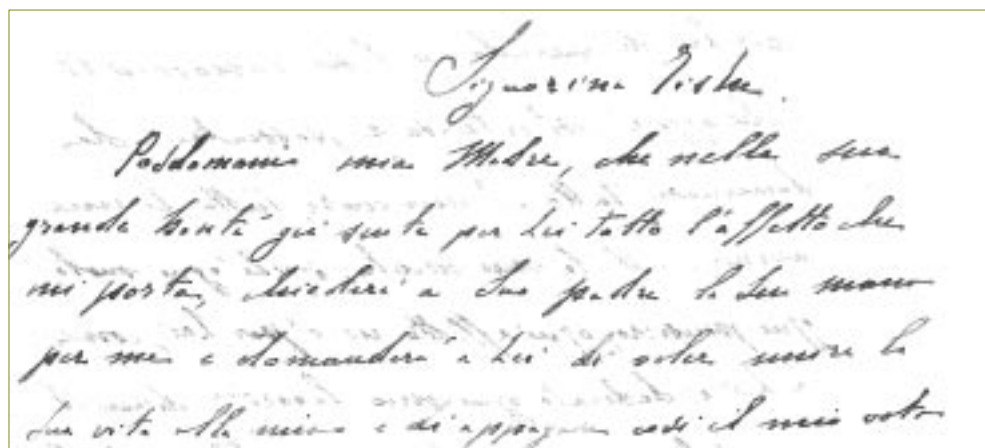 Signorina
Poddomani mia Madre, che nella sua
grande bontà già sente per Lei tutto l'affetto che
mi porta, chiederà a Suo padre la Sua mano
per me e domanderà a Lei di voler unire la
Sua vita alla mia e di appagare così il mio voto